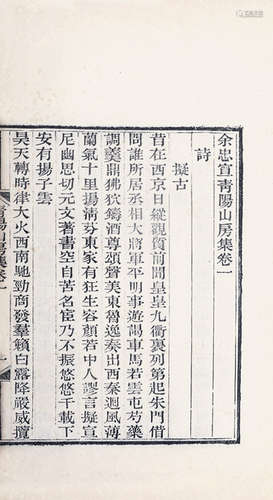 余忠宣青陽山房集卷一
詩
擬古
昔在西京日縱觀質前聞皇皇九衢裏列第起朱門借
問誰所居丞相大將軍平明事遊謁車馬若雲屯芍藥
調羹鼎狒狖鑄酒尊頌聲美東魯逸奏出西秦迴風薄
蘭氣十里揚清芬東家有狂生容顏若中人謬言擬宣
尼幽思切元文著書空自苦名宦乃不振悠悠千載下
安有揚子雲
昊天轉時律大火西南馳勁商發羣籟白露降嚴威攬